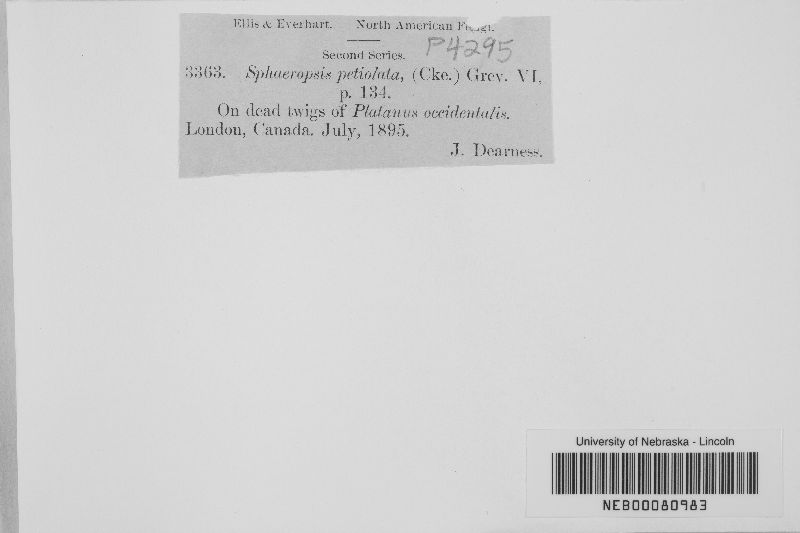 Ellis & Everhart. North American Fungi.
P4295
Second Series.
3363. Sphaeropsis petiolata, (Cke.) Grev. VI,
p. 134.
On dead twigs of Platanus occidentalis.
London, Canada. July, 1895.
J. Dearness.
University of Nebraska - Lincoln
NEB00080983